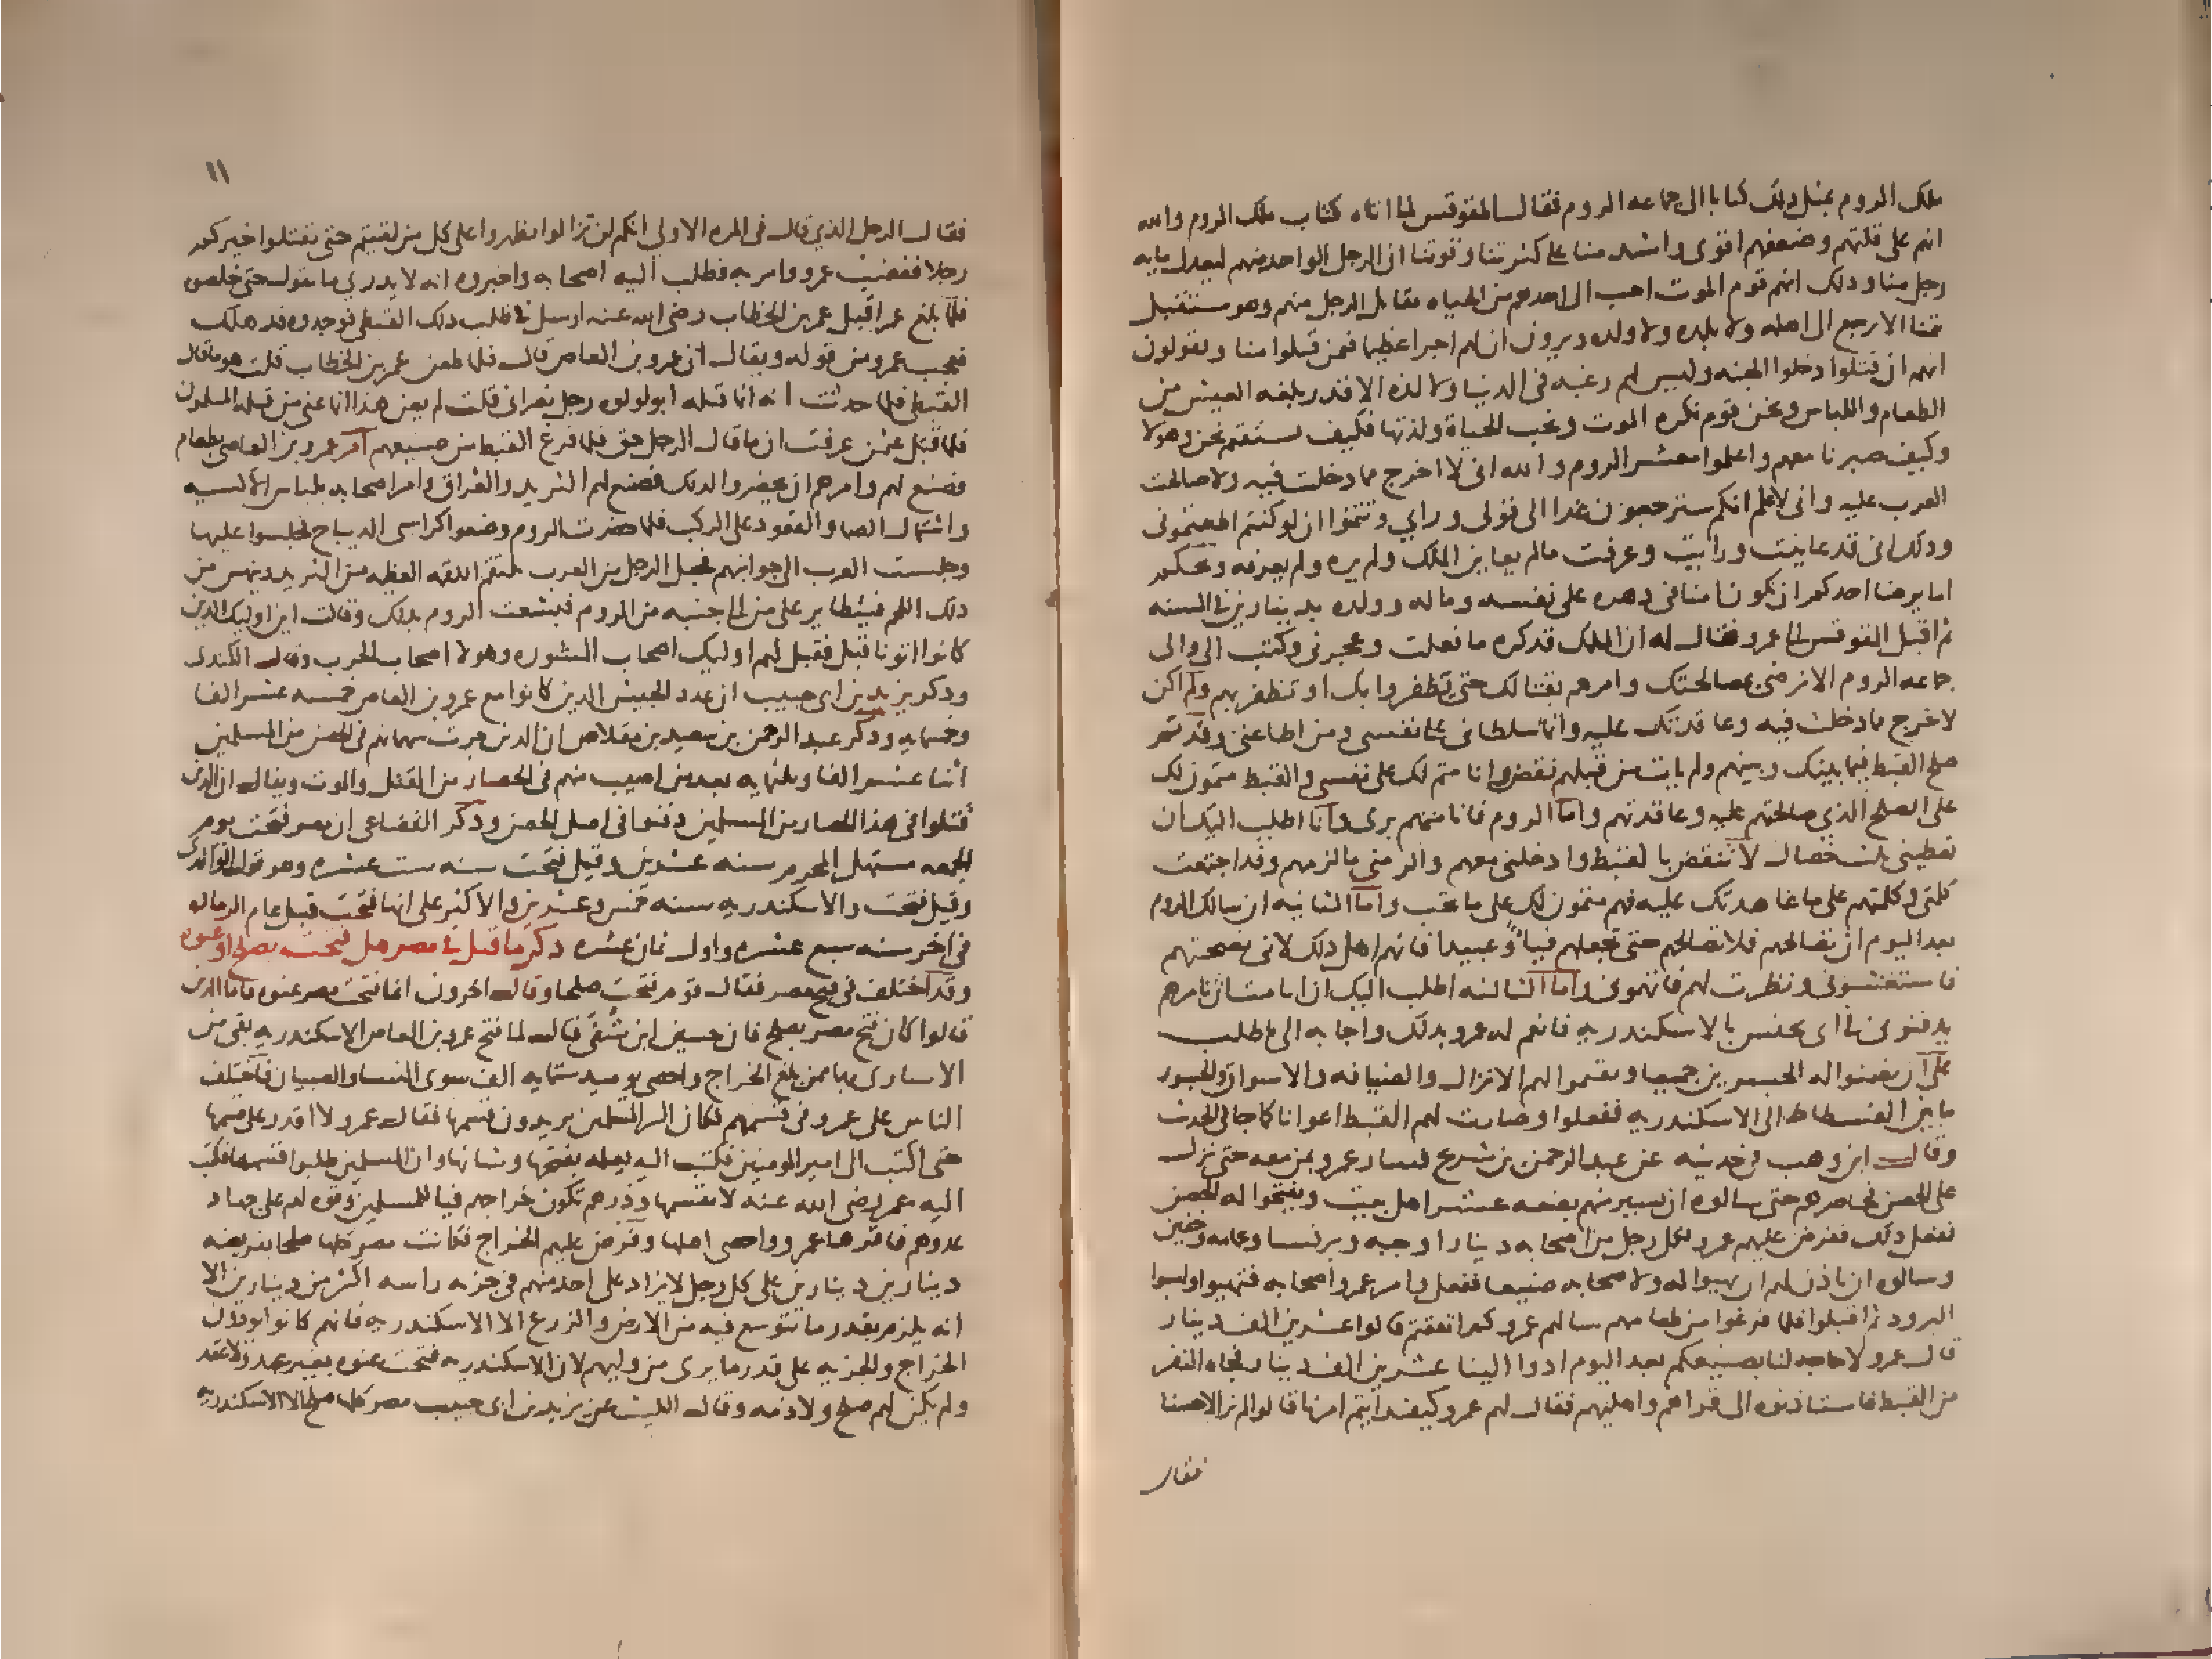 ملك الروم بمثل ذلك كتابا الى جماعه الروم فقال المقوقس لما اتاه كتاب ملك الروم والله
انهم على قلتهم وضعفهم اقوى واشد منا على كثرتنا وقوتنا ان الرجل الواحد منهم ليعدل مايه
رجل منا وذلك انهم قوم الموت احب الى احدهم من الحياه يقاتل الرجل منهم وهو مستقبل
تمنا الا يرجع الى اهله ولا بلده ولا ولده ويرون ان لهم اجرا عظيما فمن قتلوا منا ويقولون
انهم ان قتلوا دخلوا الجنه وليس لهم رغبه فى الدنيا ولا لذه الا قدر بلغه العيش من
الطعام واللباس ونحن قوم نكره الموت ونحب الحياة ولذتها فكيف نستقم نحن وهولا
وكيف صبرنا معهم واعلموا معشر الروم والله انى لا اخرج مما دخلت فيه ولا صالحت
العرب عليه وانى لاعلم انكم سترجعون غدا الى قولى ورايي وتتمنوا ان لو كنتم اطعتمونى
وذلك انى قد عاينت ورايت وعرفت مالم يعاين الملك ولم يره ولم يعرفه ويحكم
اما يرضا احدكم ان يكون امنا فى دهره على نفسه وماله وولده بدينارين فى السنه
ثم اقبل المقوقس الى عمرو فقال له ان الملك قد كره ما فعلت وعجزنى وكتب الى والى
جماعه الروم الا نرضى بمصالحتك وامرهم بقتالك حتى تظفروا بك او تظفر بهم ولم اكن
لاخرج مما دخلت فيه وعاقدتك عليه وانما سلطانى على نفسى ومن اطاعنى وقد تم
صلح القبط فيما بينك وبينهم ولم يات من قبلهم نقض وانا متم لك على نفسى والقبط متمون لك
على الصلح الذي صالحتهم عليه وعاقدتهم واما الروم فانا منهم برى وانا اطلب اليك ان
تعطينى ثلث خصال لا تنقض بالقبط وادخلنى معهم والزمنى ما لزمهم وقد اجتمعت
كلمتى وكلمتهم على ما عاهدتك عليه فهم متمون لك على ما تحب واما الثانيه ان سالك الروم
بعد اليوم ان تصالحهم فلا تصالحهم حتى تجعلهم فيا وعبيدا فانهم اهل ذلك لانى نصحتهم
فاستغشونى ونظرت لهم فاتهمونى واما الثالثه اطلب اليك ان انا مت ان تامرهم
يدفنونى فى ابى يحنس بالاسكندريه فانعم له عمرو بذلك واجابه الى ما طلب
على ان يضمنوا له الجسرين جميعا ويقيموا لهم الانزال والضيافه والاسواق والجسور
ما بين الفسطاط الى الاسكندريه ففعلوا وصارت لهم القبط اعوانا كما جا فى الحديث
وقال ابن وهب فى حديثه عن عبد الرحمن بن شريح فسار عمرو بمن معه حتى نزل
على الحصن فحاصرهم حتى سالوه ان يسير منهم بضعه عشر اهل بيت ويفتحوا له الحصن
ففعل ذلك ففرض عليهم عمرو لكل رجل من اصحابه دينارا وجبه وبرنسا وعمامه وخفين
وسالوه ان ياذن لهم ان يهيوا له ولاصحابه صنيعا ففعل وامر عمرو اصحابه فتهيوا ولبسوا
البرود ثم اقبلوا فلما فرغوا من طعامهم سالهم عمرو كم انفقتم قالوا عشرين الف دينار
قال عمرو لا حاجه لنا بصنيعكم بعد اليوم ادوا الينا عشرين الف دينار فجاه النفر
من القبط فاستاذنوه الى قراهم واهليهم فقال لهم عمرو كيف رايتم امرنا قالوا لم نر الا حسنا
فقال
١١
فقال الرجل الذي قال فى المره الاولى انكم لن تزالوا تظهروا على كل من لقيتم حتى تقتلوا خيركم
رجلا فغضب عمرو وامر به فطلب اليه اصحابه واخبروه انه لا يدري ما يقول حتى خلصوه
فلما بلغ عمرا قبل عمر بن الخطاب رضى الله عنه ارسل فى طلب ذلك القبطى فوجدوه قد هلك
فعجب عمرو من قوله ويقال ان عمرو بن العاص قال فلما طعن عمر بن الخطاب قلت هو ما قال
القبطى فلما حدثت انه انما قتله ابو لولوه رجل نصرانى قلت لم يعن هذا انما عنى من قتله المسلمون
فلما قتل عثمن عرفت ان ما قال الرجل حق فلما فرغ القبط من صنيعهم امر عمرو بن العاص بطعام
فصنع لهم وامرهم ان يحضروا لذلك فصنع لهم الثريد والعراق وامر اصحابه بلباس الاكسيه
واشتمال الصما والقعود على الركب فلما حضرت الروم وضعوا كراسى الديباج فجلسوا عليها
وجلست العرب الى جوانبهم فجعل الرجل من العرب يلتقم اللقمه العظيمه من الثريد وينهس من
ذلك اللحم فيتطاير على من الى جنبه من الروم فبشعت الروم بذلك وقالت اين اوليك الذين
كانوا اتونا قبل فقيل لهم اوليك اصحاب المشوره وهولا اصحاب الحرب وقال الكندى
وذكر يزيد بن ابى حبيب ان عدد الجيش الذين كانوا مع عمرو بن العاص خمسه عشر الفا
وخمسمايه وذكر عبد الرحمن بن سعيد بن مقلاص ان الذين جرت سهمانهم فى الحصن من المسلمين
اثنا عشر الفا وثلثمايه بعد من اصيب منهم فى الحصار من القتل والموت ويقال ان الذين
قتلوا فى هذا الحصار من المسلمين دفنوا فى اصل الحصن وذكر القضاعى ان مصر فتحت يوم
الجمعه مستهل المحرم سنه عشرين وقيل فتحت سنه ست عشره وهو قول الواقدى
وقيل فتحت والاسكندريه سنه خمس وعشرين والاكثر على انها فتحت قبل عام الرماده
فى اخر سنه سبع عشره واول ثمان عشره ذكر ما قيل فى مصر هل فتحت بصلح او عنوه
وقد اختلف فى فتح مصر فقال قوم فتحت صلحا وقال اخرون انما فتحت مصر عنوه فاما الذين
قالوا كان فتح مصر بصلح فان حسين ابن شفى قال لما فتح عمرو بن العاص الاسكندريه بقى من
الاسارى بها ممن بلغ الخراج واحصى يوميد ستمايه الف سوى النسا والصبيان فاختلف
الناس على عمرو فى قسمهم فكان اكثر المسلمين يريدون قسمها فقال عمرو لا اقدر على قسمها
حتى اكتب الى امير المومنين فكتب اليه يعلمه بفتحها وشانها وان المسلمين طلبوا قسمها فكتب
اليه عمر رضى الله عنه لا تقسمها وذرهم تكون خراجهم فيا للمسلمين وقوه لهم على جهاد
عدوهم فاقرها عمرو واحصى اهلها وفرض عليهم الخراج فكانت مصر كلها صلحا بفريضه
دينارين دينارين على كل رجل لا يزاد على احد منهم فى جزيه راسه اكثر من دينارين الا
انه يلزم بقدر ما يتوسع فيه من الارض والزرع الا الاسكندريه فانهم كانوا يودون
الخراج والجزيه على قدر ما يرى من وليهم لان الاسكندريه فتحت عنوه بغير عهد ولا عقد
ولم يكن لهم صلح ولا ذمه وقال الليث عن يزيد بن ابى حبيب مصر كلها صلح الا الاسكندريه